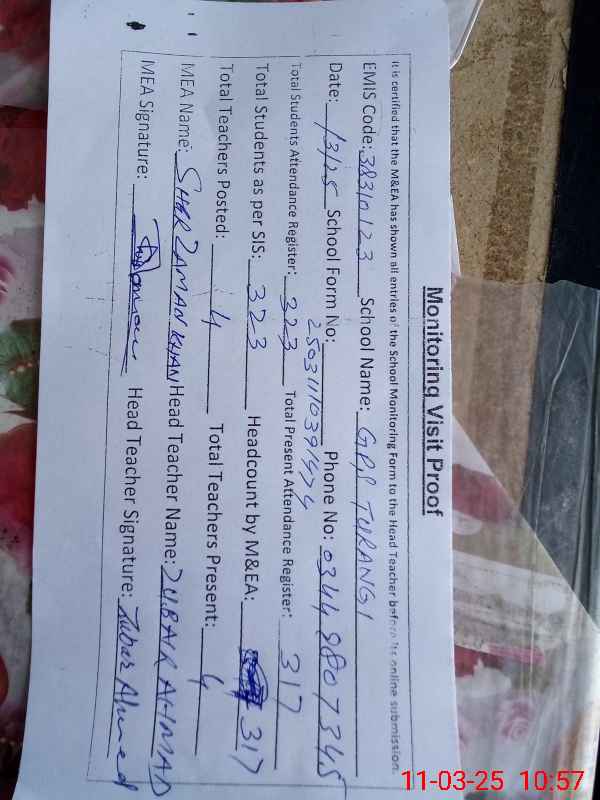 Monitoring Visit Proof
It is certified that the M&EA has shown all entries of the School Monitoring Form to the Head Teacher before its online submission.
EMIS Code: 38310123 School Name: GPS TURANGI
Date: /3/25 School Form No: 25031110391474 Phone No: 03448807345
Total Students Attendance Register: 323 Total Present Attendance Register: 317
Total Students as per SIS: 323 Headcount by M&EA: 317
Total Teachers Posted: 4 Total Teachers Present: 4
MEA Name: SHER ZAMAN KHAN Head Teacher Name: ZUBAIR AHMAD
MEA Signature: Head Teacher Signature: Zubair Ahmed
11-03-25 10:57